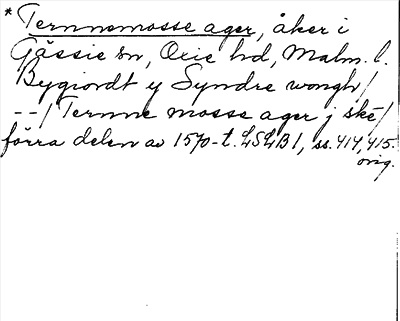 * Ternnemosse ager, åker i
Gässie sn, Oxie hd, Malm. l.
Bygiordt y Syndre wongh/
--/ Ternne mosse ager j ske/
förra delen av 1570-t. LSLB1, ss. 414, 415.
orig.